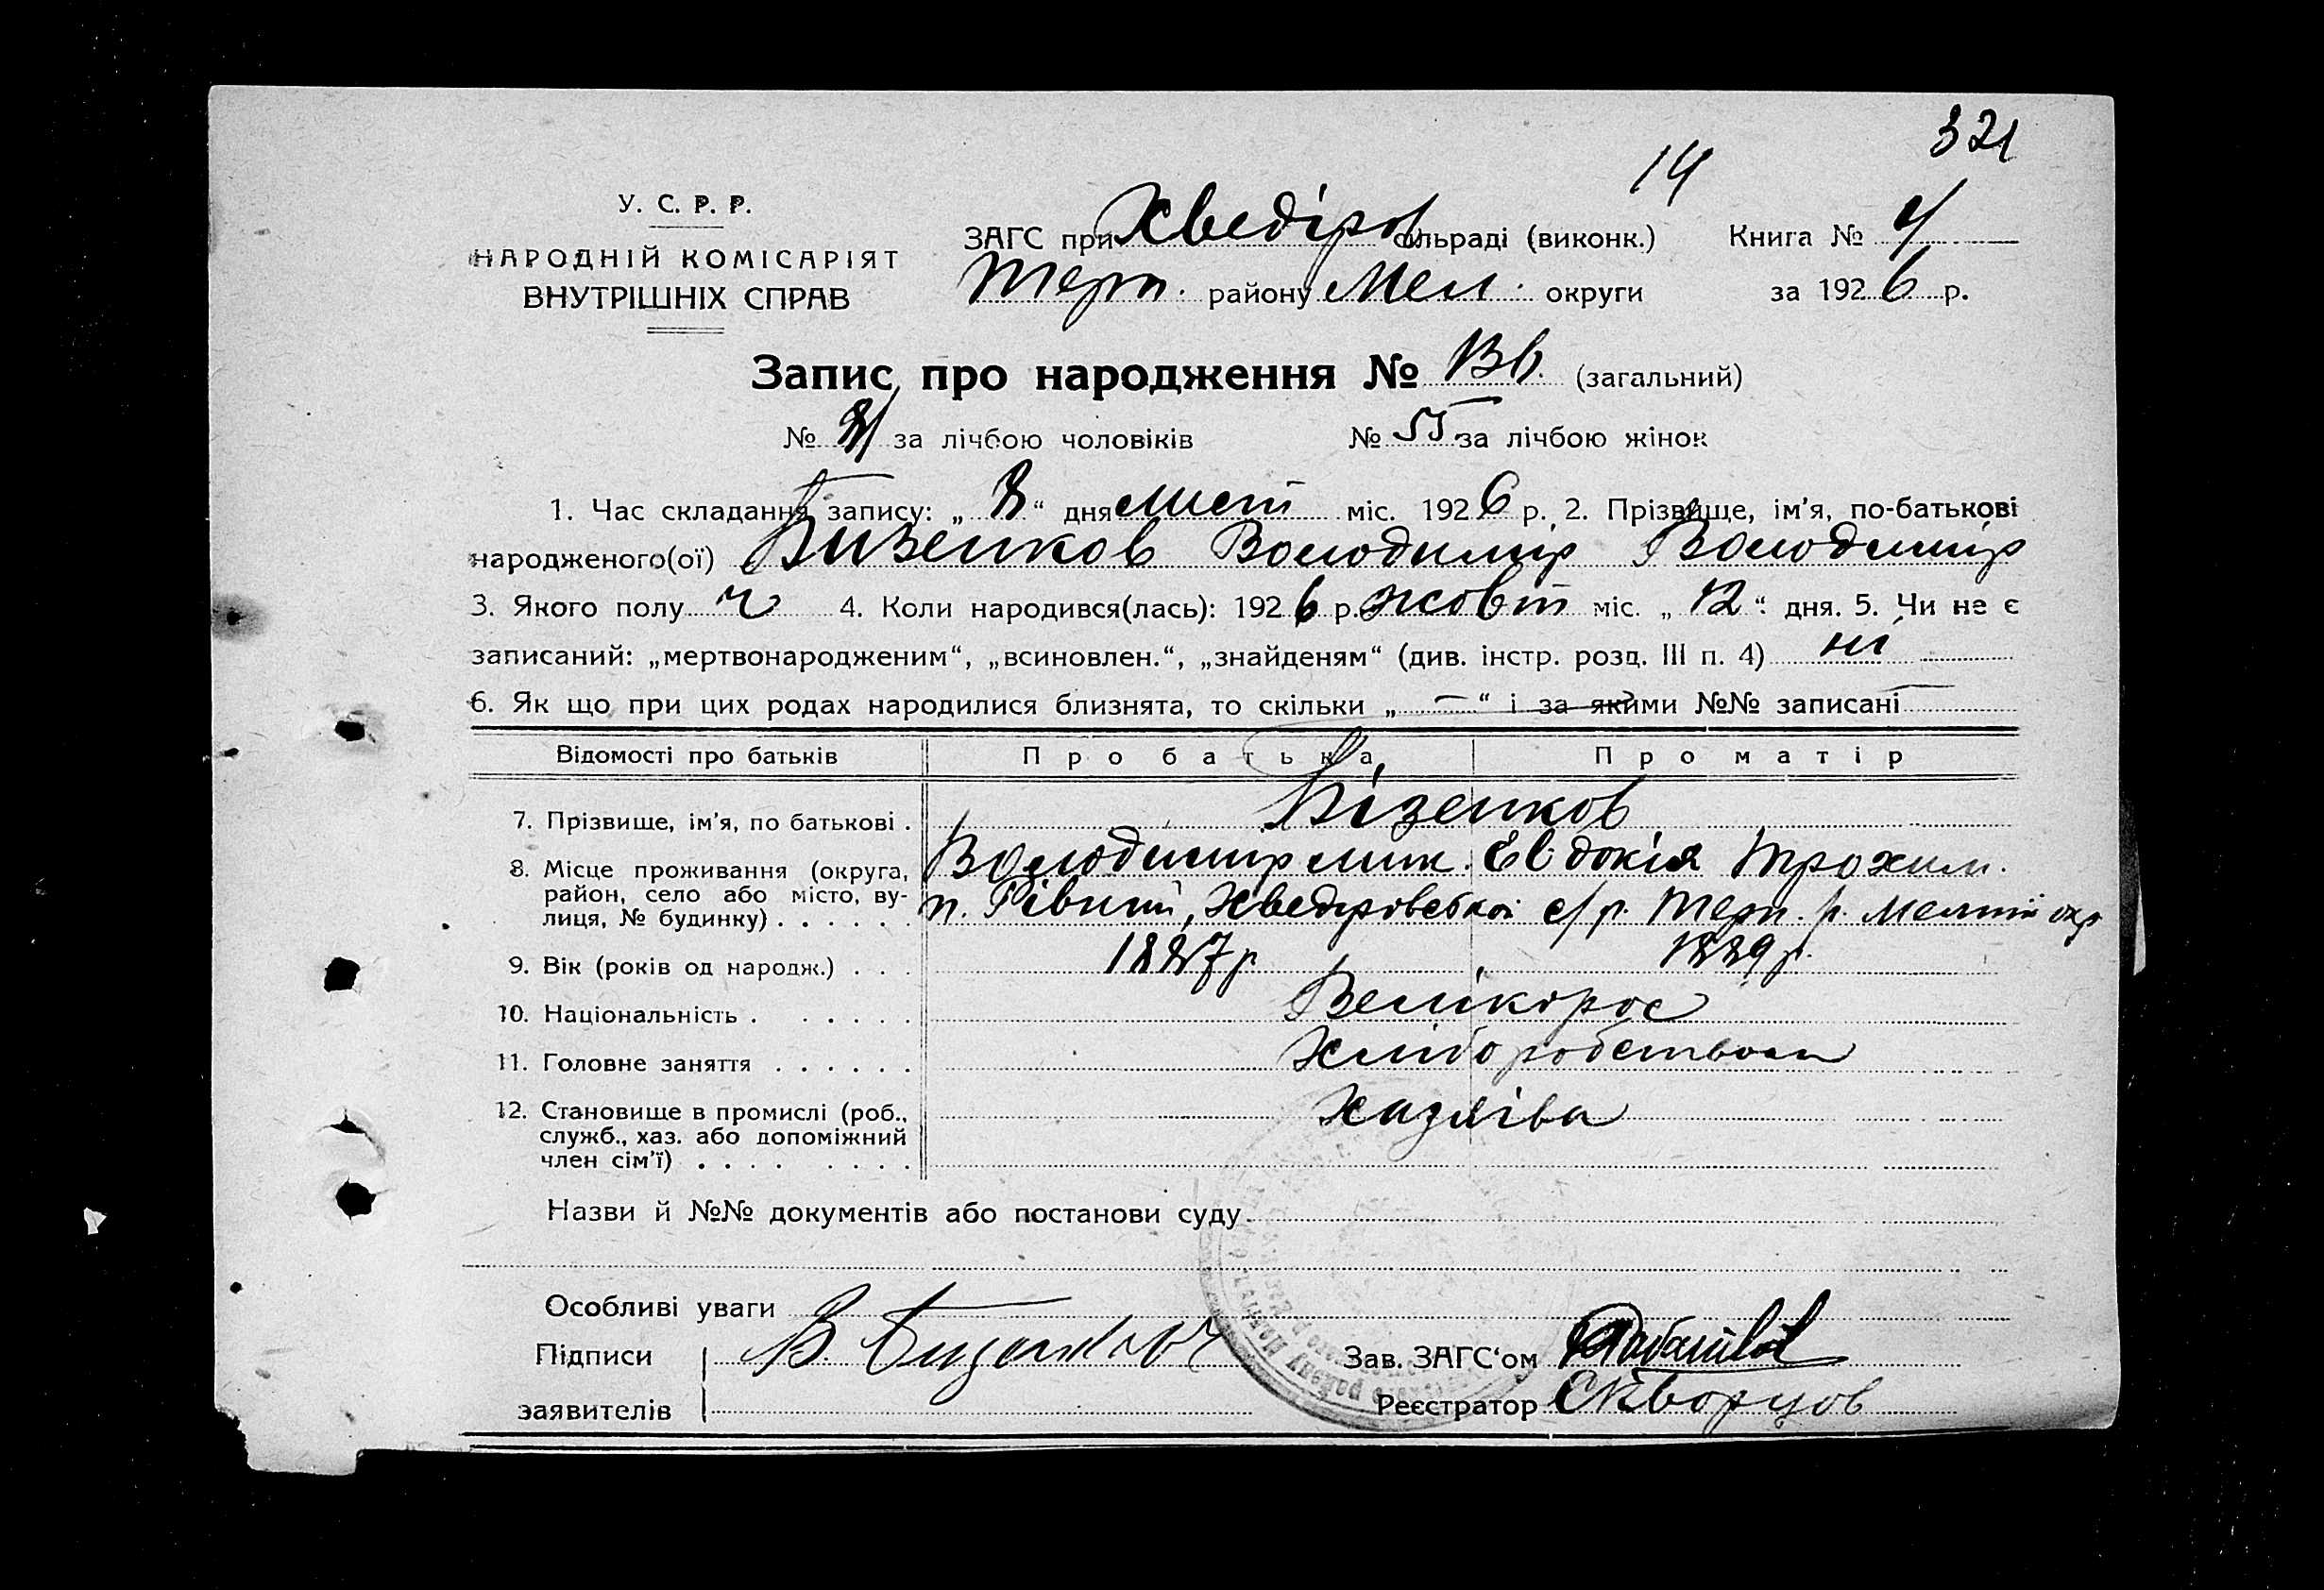 321
14
У. С. Р. Р.
НАРОДНІЙ КОМІСАРІЯТ
ВНУТРІШНІХ СПРАВ
ЗАГС при Хведіров сільраді (виконк.) Книга № 4
Терп. району Мел. округи за 1926 р.
Запис про народження № (загальний)
№ за лічбою чоловіків № 55 за лічбою жінок
1. Час складання запису: „ 8 “ дня лист міс. 1926 р. 2. Прізвище, ім'я, по-батькові
народженого(ої) Бизенков Володимір Володимір
3. Якого полу ч 4. Коли народився(лась): 1926 р. жовт міс. „ 12 “ дня. 5. Чи не є
записаний: „мертвонародженим“, „всиновлен.“, „знайденям“ (див. інстр. розд. III п. 4) ні
6. Як що при цих родах народилися близнята, то скільки „ — “ і за якими №№ записані
Відомості про батьків Про батька Про матір
7. Прізвище, ім'я, по батькові . Бізенков
8. Місце проживання (округа, Володимир мик. Евдокія Трохим.
район, село або місто, ву-
лиця, № будинку) . . . . . . п. Рівний, Хведіровської с/р. Терп. р. Мелит окр
9. Вік (років од народж.) . . . 1887 р 1889 р.
10. Національність . . . . . . Велікорос
11. Головне заняття . . . . . . Хліборобством
12. Становище в промислі (роб., Хазяіва
служб., хаз. або допоміжний
член сім'ї) . . . . . . . .
Назви й №№ документів або постанови суду
Особливі уваги
Підписи В. Бизенков Зав. ЗАГС‘ом
заявителів Реєстратор Скворцов